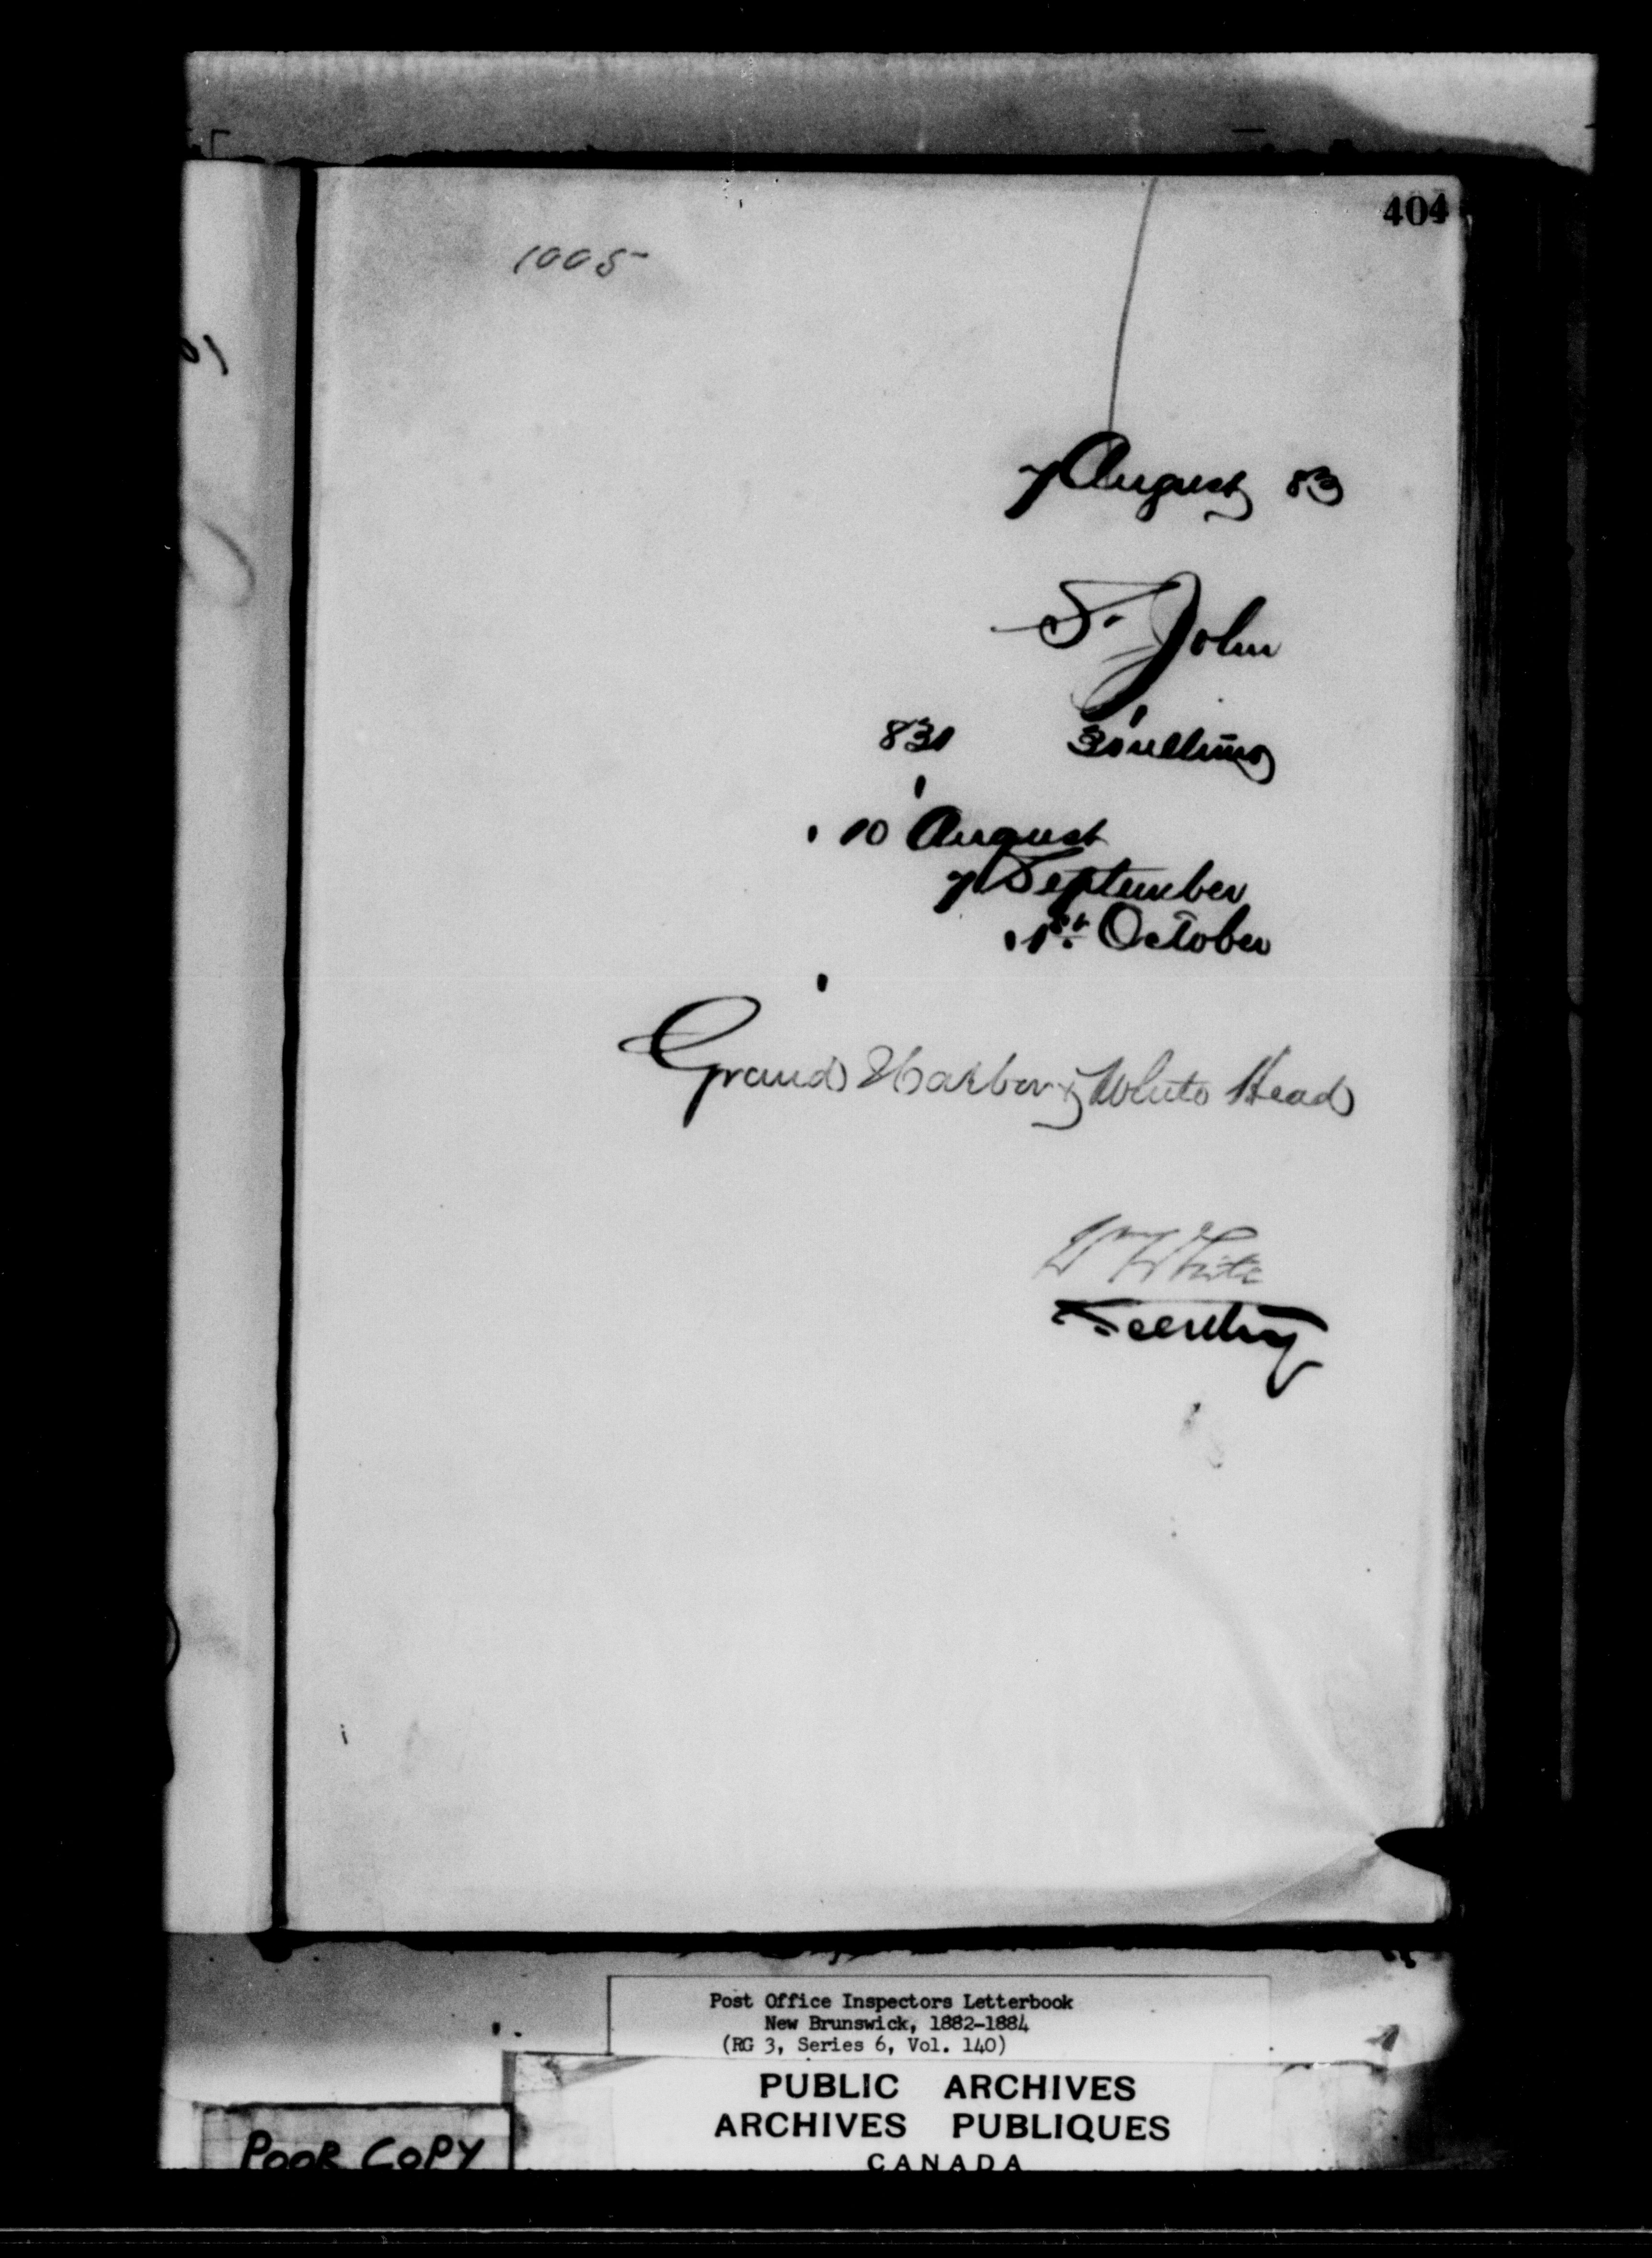 404
1005
7 August 83
St. John
831
10 August
7 September
1st October
Grand Harbor & White Head
Wm White
Secretary
Post Office Inspectors Letterbook
New Brunswick, 1882-1884
(RG 3, Series 6, Vol. 140)
PUBLIC ARCHIVES
ARCHIVES PUBLIQUES
CANADA
POOR COPY